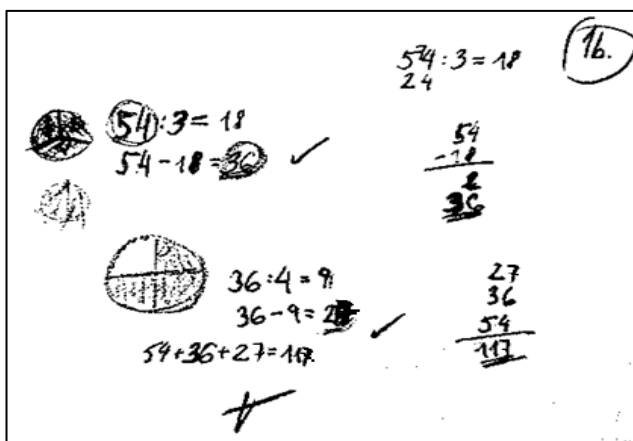 1b.
54:3=18
24
54:3=18
54-18=36
54
-18
36
36:4=9
36-9=27
54+36+27=117
27
36
54
117